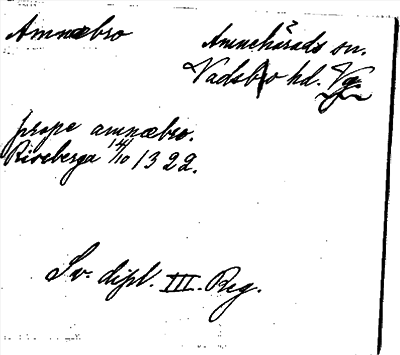 Amnæbro
Amnehärads sn.
Vadsbo hd. Vg.
prope amnæbro.
Riseberga 14/10 1322.
Sv. dipl. III. Reg.